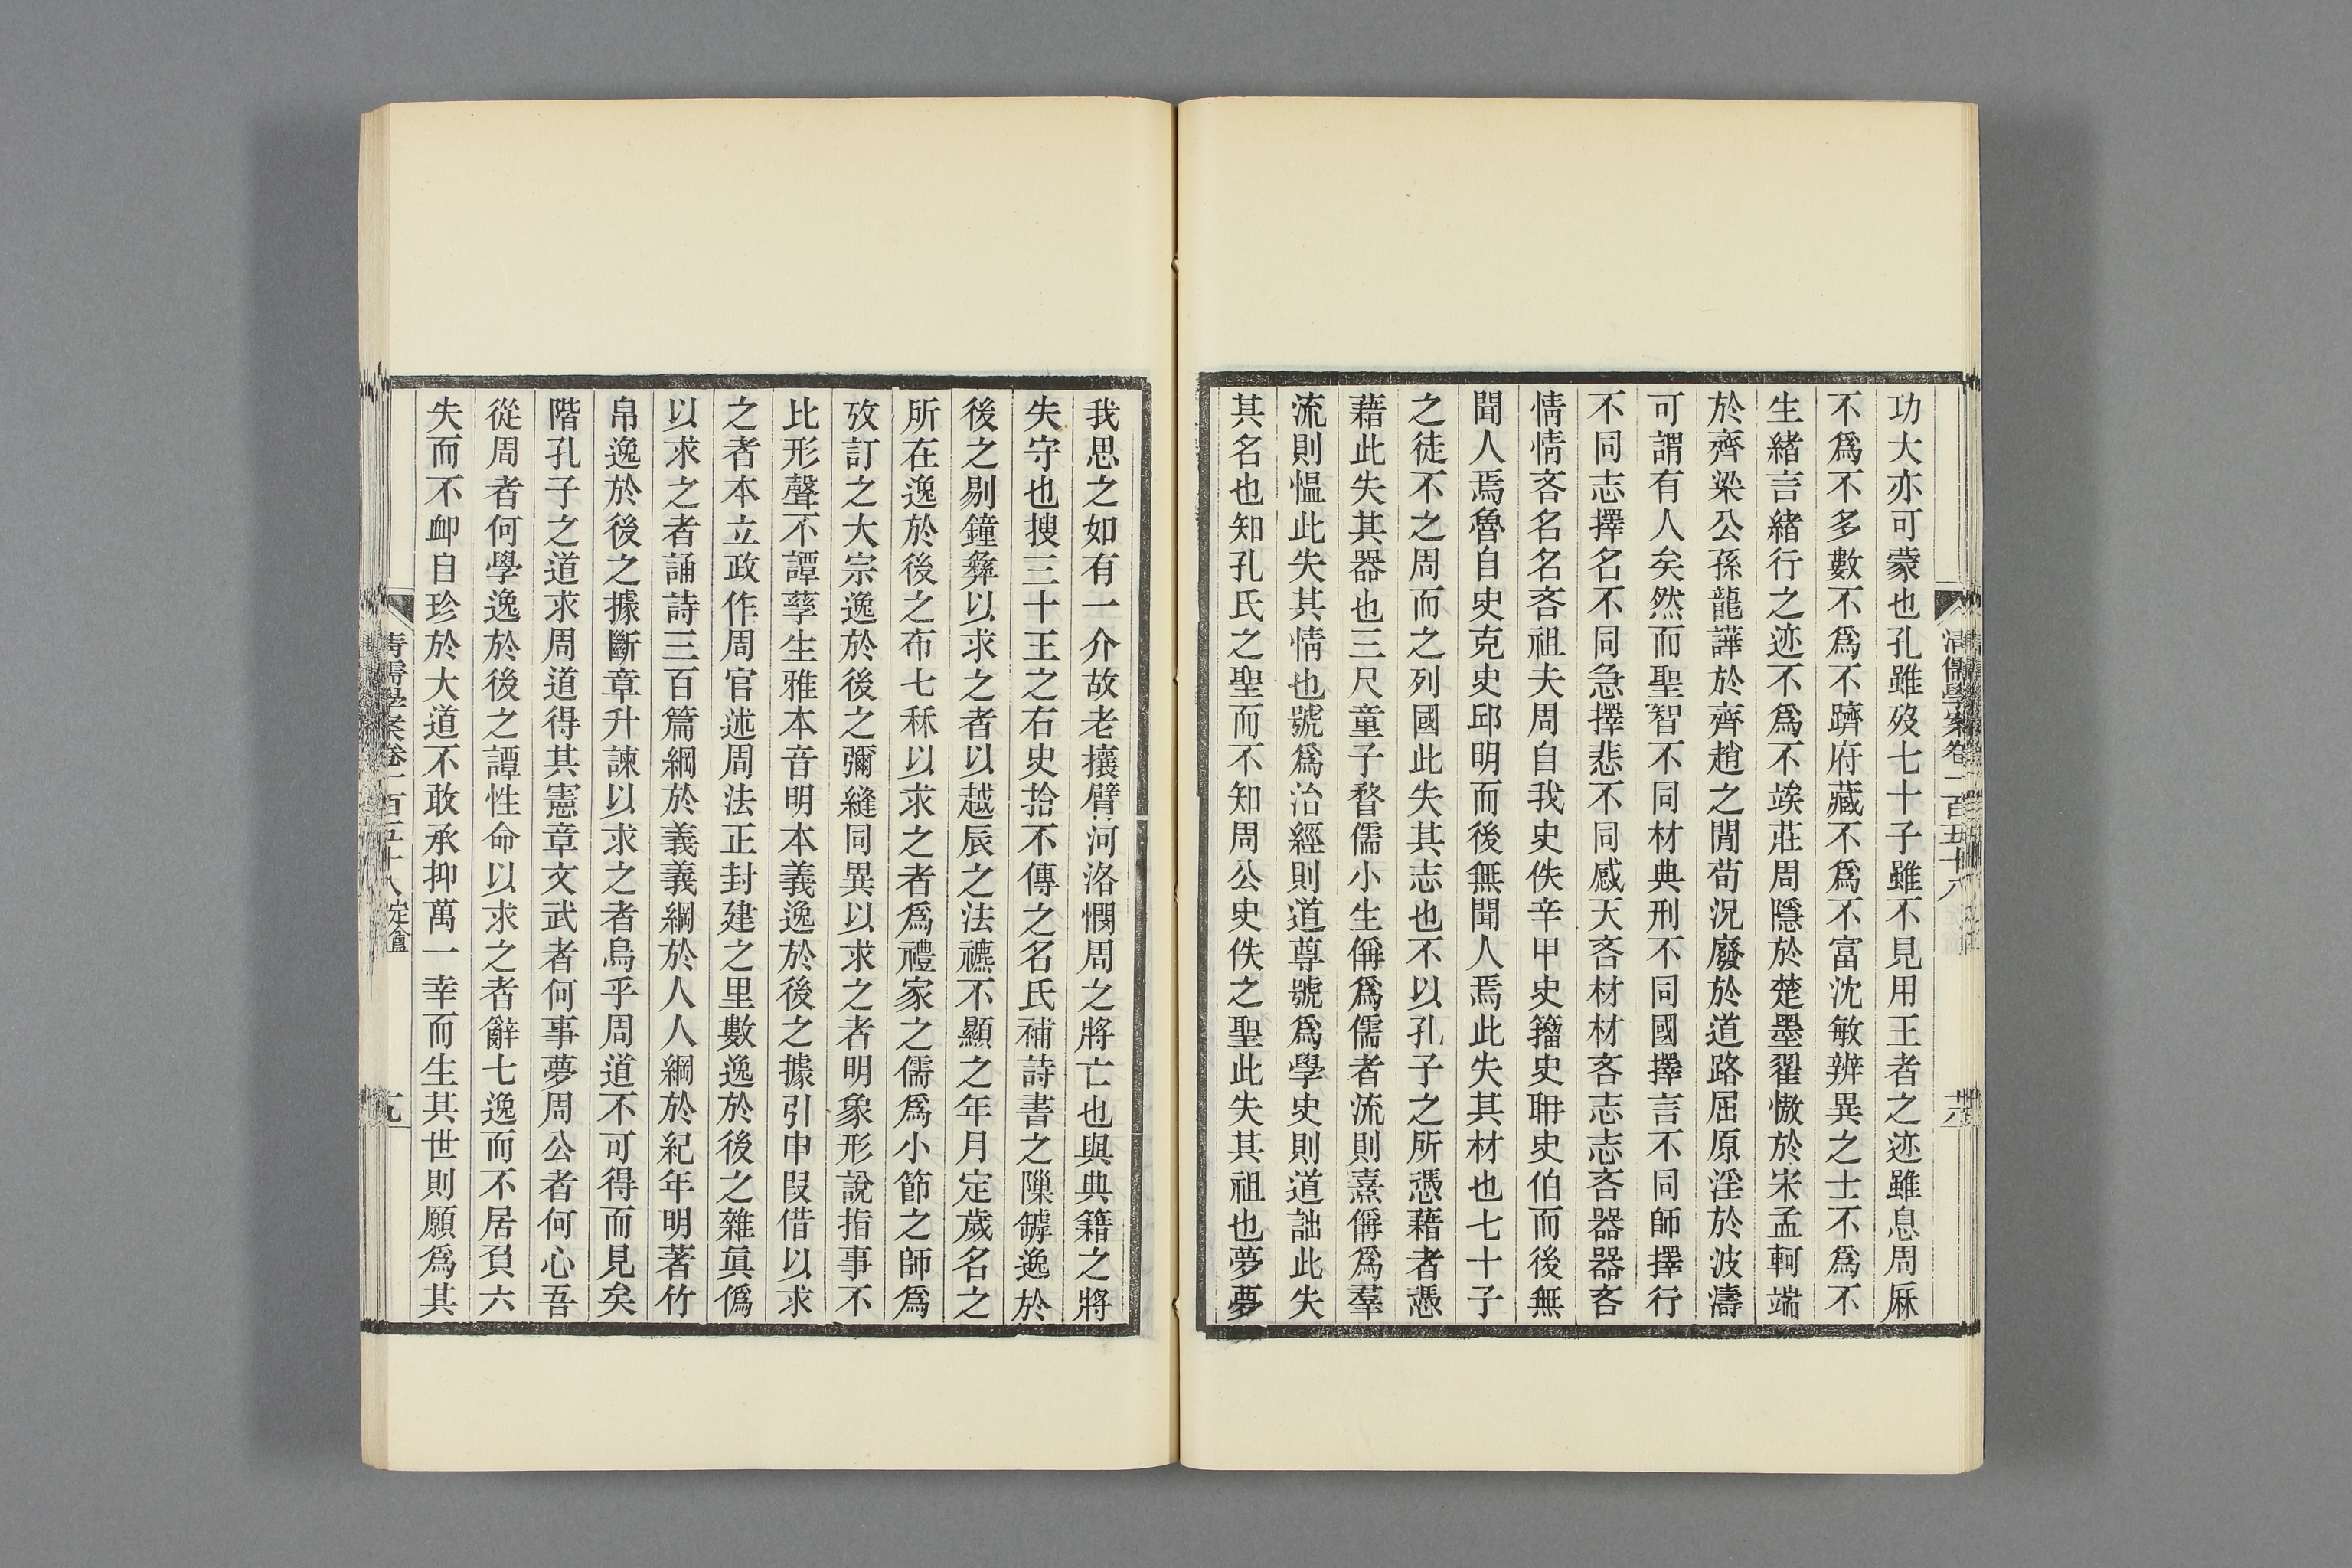 清儒學案卷一百五十八
功大亦可蒙也孔雖歿七十子雖不見用王者之迹雖息周厤
不爲不多數不爲不躋府藏不爲不富沈敏辨異之士不爲不
生緒言緒行之迹不爲不竢莊周隱於楚墨翟慠於宋孟軻端
於齊梁公孫龍譁於齊趙之閒荀況廢於道路屈原淫於波濤
可謂有人矣然而聖智不同材典刑不同國擇言不同師擇行
不同志擇名不同急擇悲不同感天吝材材吝志志吝器器吝
情情吝名名吝祖夫周自我史佚辛甲史籒史耼史伯而後無
聞人焉魯自史克史邱明而後無聞人焉此失其材也七十子
之徒不之周而之列國此失其志也不以孔子之所憑藉者憑
藉此失其器也三尺童子瞀儒小生偁爲儒者流則憙偁爲羣
流則愠此失其情也號爲治經則道尊號爲學史則道詘此失
其名也知孔氏之聖而不知周公史佚之聖此失其祖也夢夢
我思之如有一介故老攘臂河洛憫周之將亡也與典籍之將
失守也搜三十王之右史拾不傳之名氏補詩書之隟罅逸於
後之剔鐘彝以求之者以越辰之法䜟不顯之年月定歲名之
所在逸於後之布七秝以求之者爲禮家之儒爲小節之師爲
攷訂之大宗逸於後之彌縫同異以求之者明象形說指事不
比形聲不譚孳生雅本音明本義逸於後之據引申叚借以求
之者本立政作周官述周法正封建之里數逸於後之雜眞僞
以求之者誦詩三百篇綱於義義綱於人人綱於紀年明著竹
帛逸於後之據斷章升諫以求之者烏乎周道不可得而見矣
階孔子之道求周道得其憲章文武者何事夢周公者何心吾
從周者何學逸於後之譚性命以求之者辭七逸而不居負六
失而不卹自珍於大道不敢承抑萬一幸而生其世則願爲其
清儒學案卷一百五十八 定盦